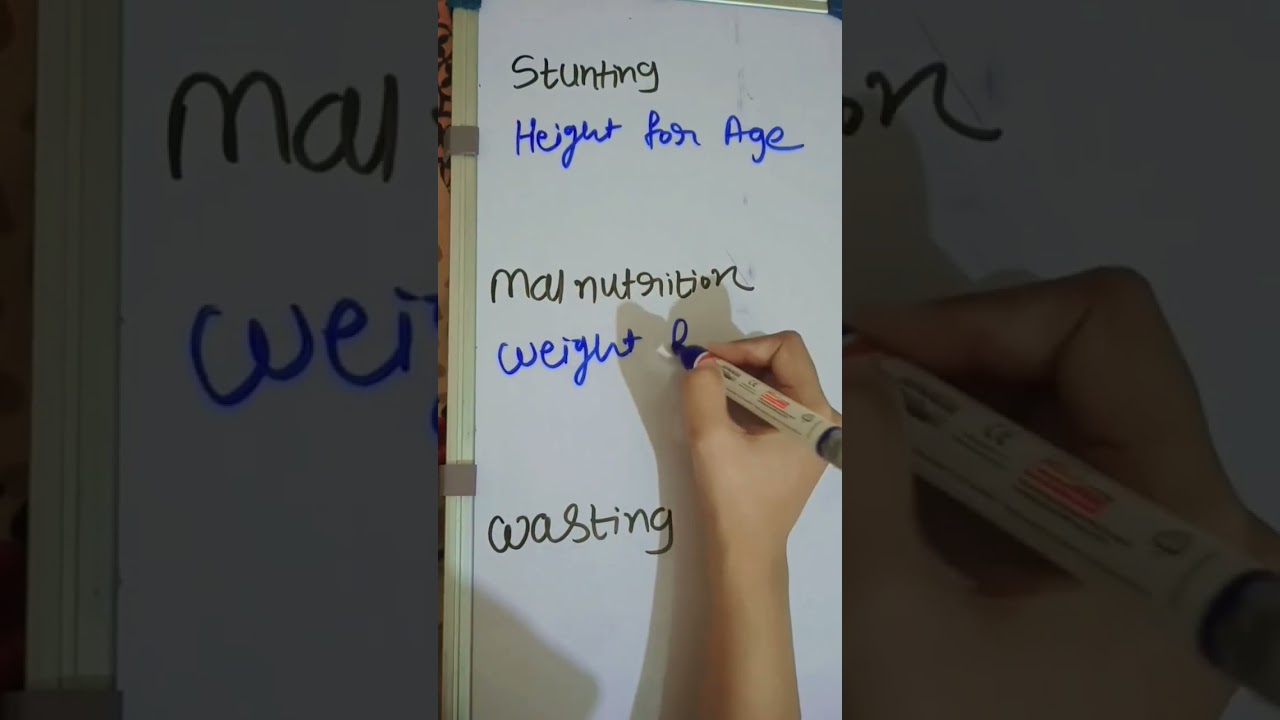 Stunting
Height for Age
Malnutrition
Weight f
Wasting